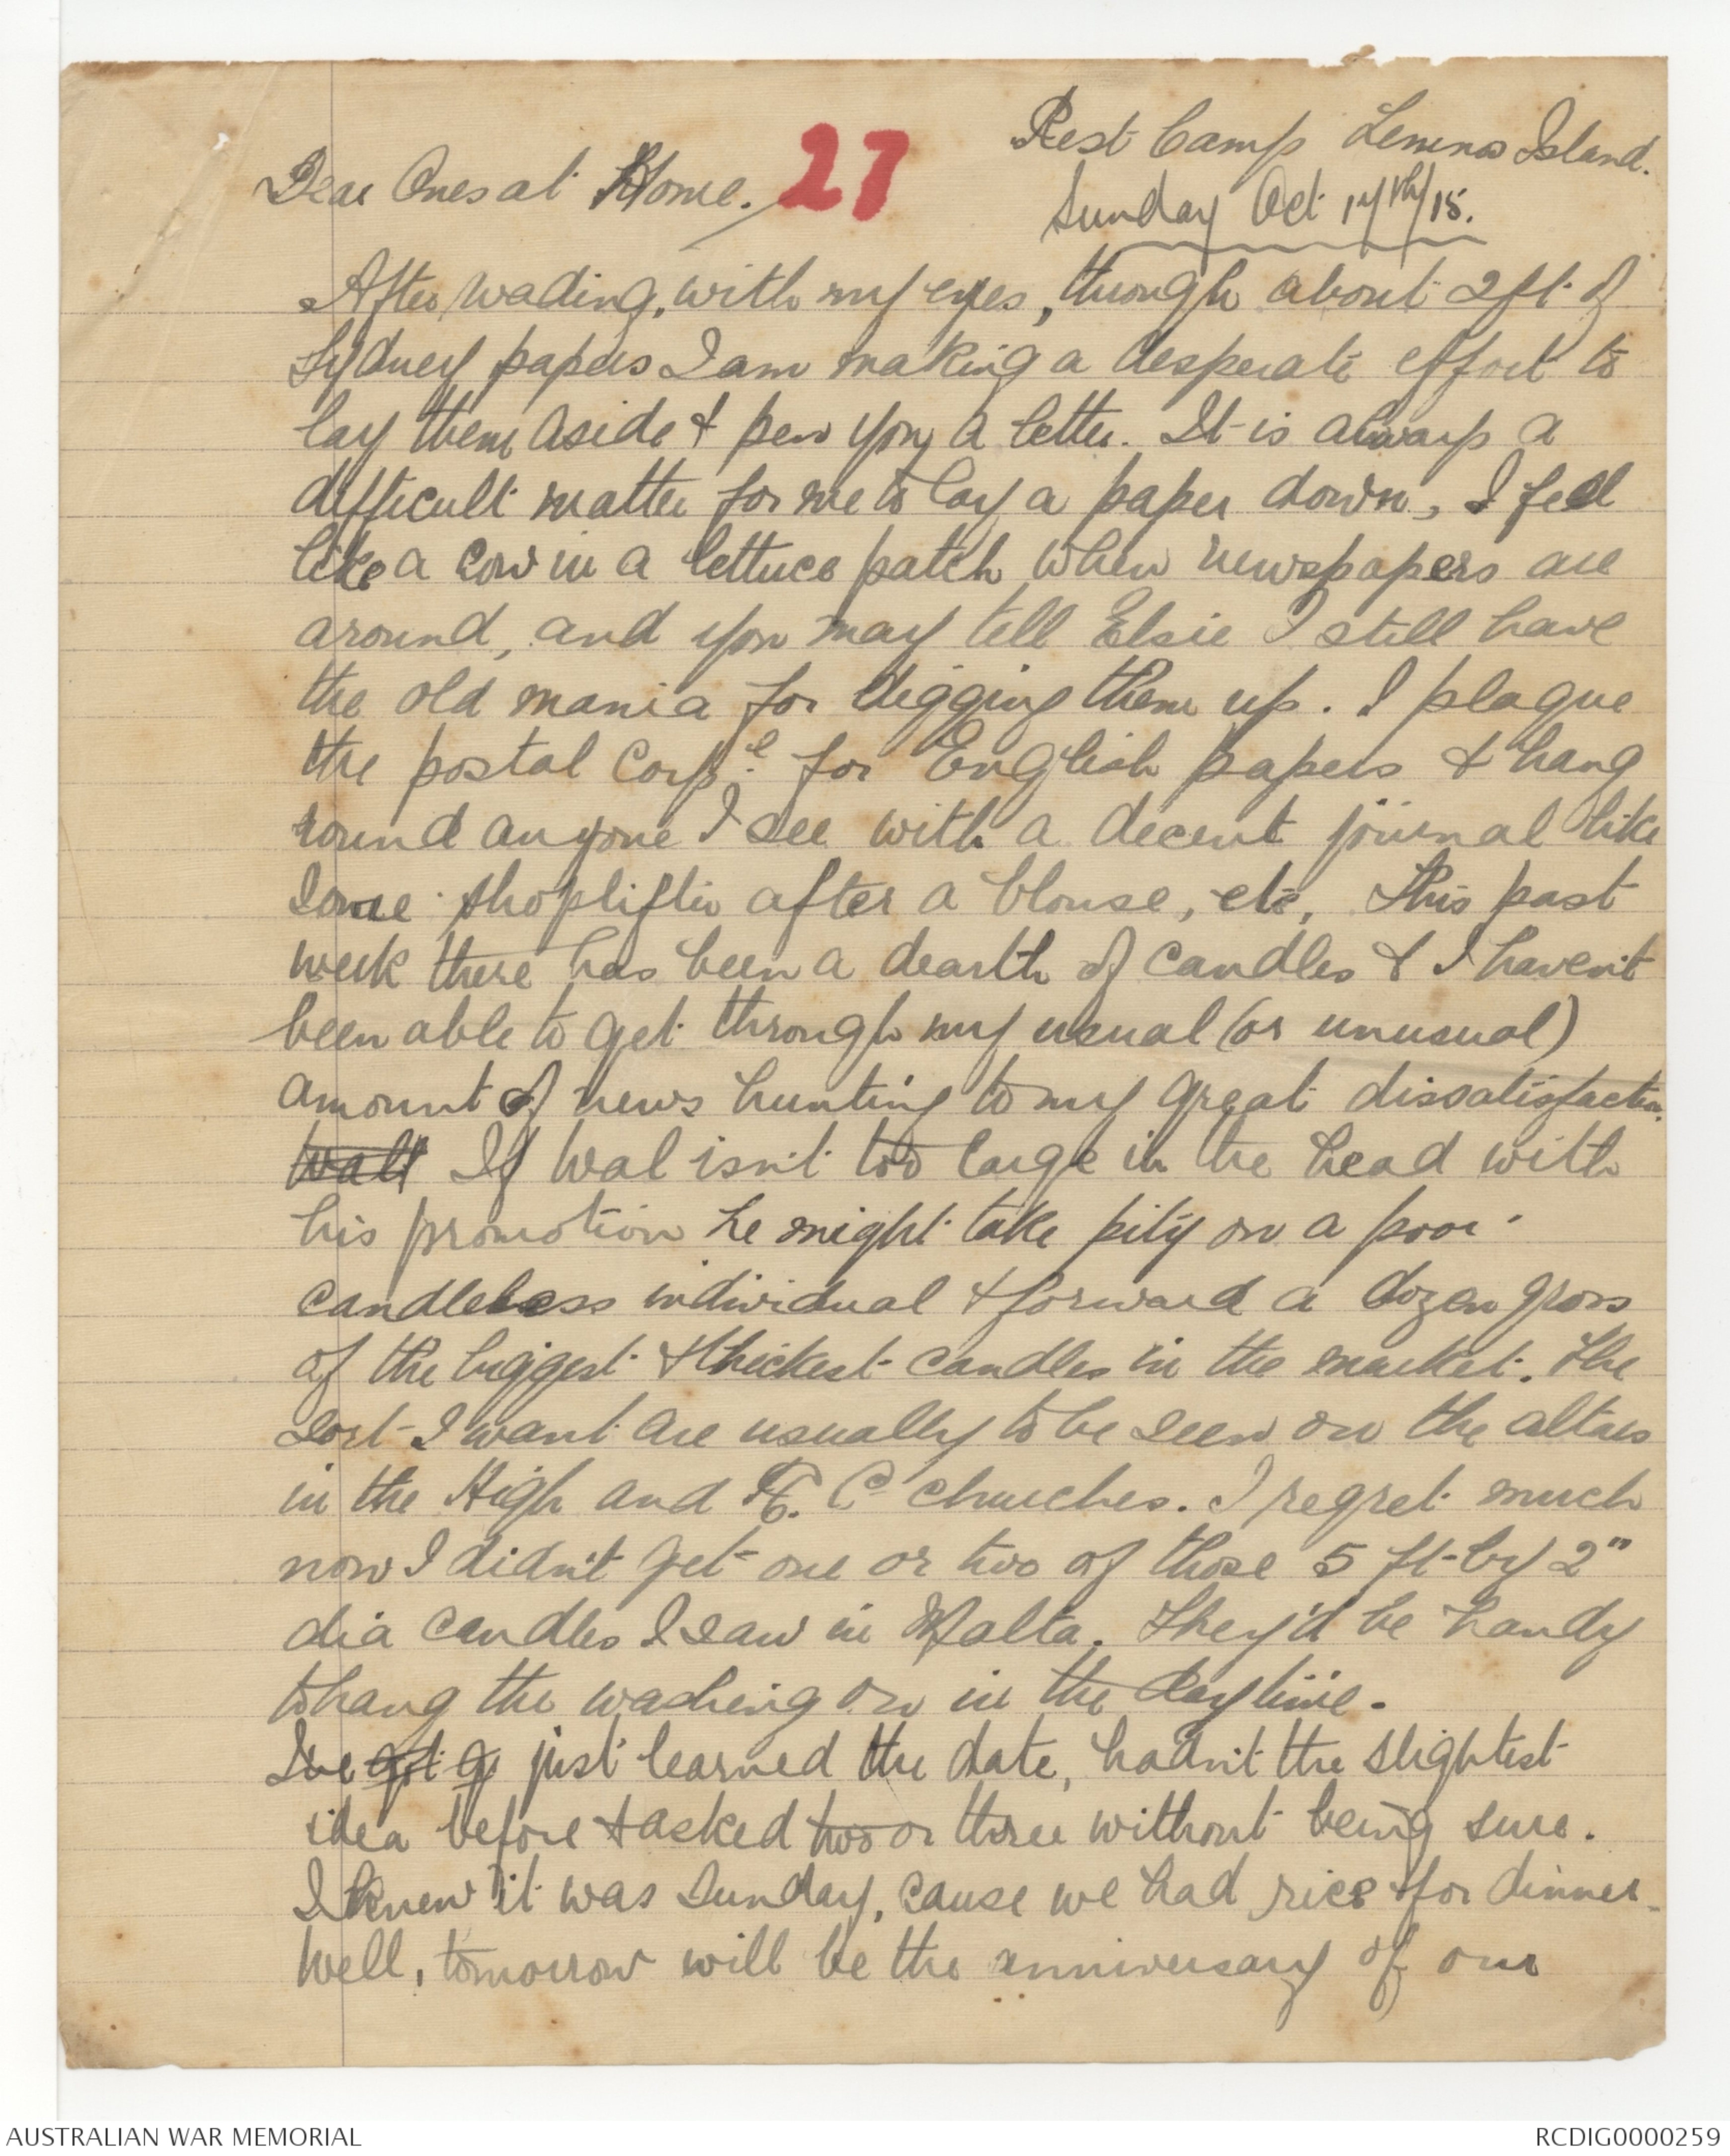 Rest Camp Lemnos Island.
Dear Ones at Home. 27
Sunday Oct 17th/15.
After wading, with my eyes, through about 2ft of
Sydney papers I am making a desperate effort to
lay them aside & pen you a letter. It is always a
difficult matter for me to lay a paper down, I feel
like a cow in a lettuce patch when newspapers are
around, and you may tell Elsie I still have
the old mania for digging them up. I plague
the postal Corpl. for English papers & hang
round anyone I see with a decent journal like
some shoplifter after a blouse, etc. This past
week there has been a dearth of candles & I haven't
been able to get through my usual (or unusual)
amount of news hunting to my great dissatisfaction.
Walt If Wal isn't too large in the head with
his promotion he might take pity on a poor
candleless individual & forward a dozen gross
of the biggest & thickest candles in the market. The
sort I want are usually to be seen on the altars
in the High and R. C churches. I regret much
now I didn't get one or two of those 5 ft by 2"
dia candles I saw in Malta. They'd be handy
to hang the washing on in the daytime.
I've got g just learned the date, hadn't the slightest
idea before & asked two or three without being sure.
I knew it was Sunday, cause we had rice for dinner.
Well, tomorrow will be the anniversary of our
AUSTRALIAN WAR MEMORIAL
RCDIG0000259